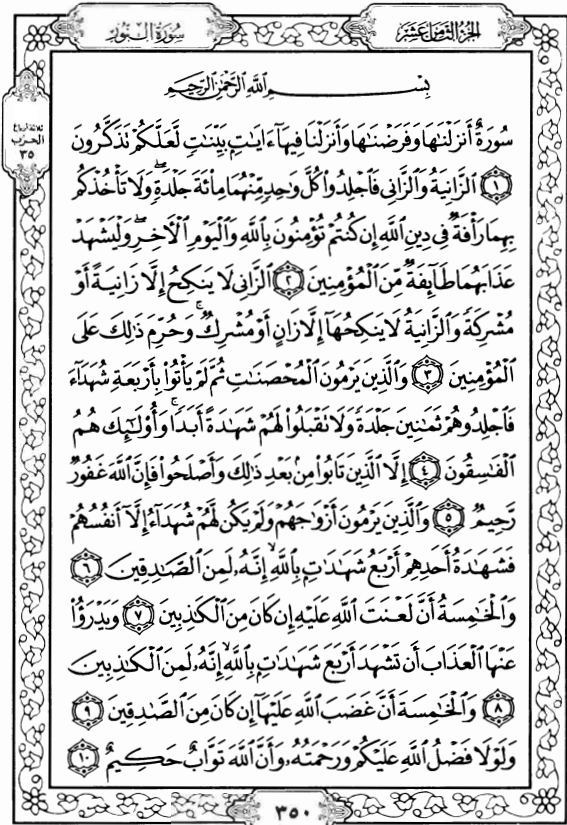 سُورَةُ النُّورِ
الجُزْءُ الثَّامِنَ عَشَرَ
ثلاثة أرباع
الحزب
٣٥
بِسْمِ اللَّهِ الرَّحْمَٰنِ الرَّحِيمِ
سُورَةٌ أَنزَلْنَٰهَا وَفَرَضْنَٰهَا وَأَنزَلْنَا فِيهَآ ءَايَٰتٍۭ بَيِّنَٰتٍ لَّعَلَّكُمْ تَذَكَّرُونَ
١ ٱلزَّانِيَةُ وَٱلزَّانِى فَٱجْلِدُوا۟ كُلَّ وَٰحِدٍ مِّنْهُمَا مِا۟ئَةَ جَلْدَةٍ ۖ وَلَا تَأْخُذْكُم
بِهِمَا رَأْفَةٌ فِى دِينِ ٱللَّهِ إِن كُنتُمْ تُؤْمِنُونَ بِٱللَّهِ وَٱلْيَوْمِ ٱلْءَاخِرِ ۖ وَلْيَشْهَدْ
عَذَابَهُمَا طَآئِفَةٌ مِّنَ ٱلْمُؤْمِنِينَ ٢ ٱلزَّانِى لَا يَنكِحُ إِلَّا زَانِيَةً أَوْ
مُشْرِكَةً وَٱلزَّانِيَةُ لَا يَنكِحُهَآ إِلَّا زَانٍ أَوْ مُشْرِكٌ ۚ وَحُرِّمَ ذَٰلِكَ عَلَى
ٱلْمُؤْمِنِينَ ٣ وَٱلَّذِينَ يَرْمُونَ ٱلْمُحْصَنَٰتِ ثُمَّ لَمْ يَأْتُوا۟ بِأَرْبَعَةِ شُهَدَآءَ
فَٱجْلِدُوهُمْ ثَمَٰنِينَ جَلْدَةً وَلَا تَقْبَلُوا۟ لَهُمْ شَهَٰدَةً أَبَدًا ۚ وَأُو۟لَٰٓئِكَ هُمُ
ٱلْفَٰسِقُونَ ٤ إِلَّا ٱلَّذِينَ تَابُوا۟ مِنۢ بَعْدِ ذَٰلِكَ وَأَصْلَحُوا۟ فَإِنَّ ٱللَّهَ غَفُورٌ
رَّحِيمٌ ٥ وَٱلَّذِينَ يَرْمُونَ أَزْوَٰجَهُمْ وَلَمْ يَكُن لَّهُمْ شُهَدَآءُ إِلَّآ أَنفُسُهُمْ
فَشَهَٰدَةُ أَحَدِهِمْ أَرْبَعُ شَهَٰدَٰتٍۭ بِٱللَّهِ ۙ إِنَّهُۥ لَمِنَ ٱلصَّٰدِقِينَ ٦
وَٱلْخَٰمِسَةُ أَنَّ لَعْنَتَ ٱللَّهِ عَلَيْهِ إِن كَانَ مِنَ ٱلْكَٰذِبِينَ ٧ وَيَدْرَؤُا۟
عَنْهَا ٱلْعَذَابَ أَن تَشْهَدَ أَرْبَعَ شَهَٰدَٰتٍۭ بِٱللَّهِ ۙ إِنَّهُۥ لَمِنَ ٱلْكَٰذِبِينَ
٨ وَٱلْخَٰمِسَةَ أَنَّ غَضَبَ ٱللَّهِ عَلَيْهَآ إِن كَانَ مِنَ ٱلصَّٰدِقِينَ ٩
وَلَوْلَا فَضْلُ ٱللَّهِ عَلَيْكُمْ وَرَحْمَتُهُۥ وَأَنَّ ٱللَّهَ تَوَّابٌ حَكِيمٌ ١٠
٣٥٠